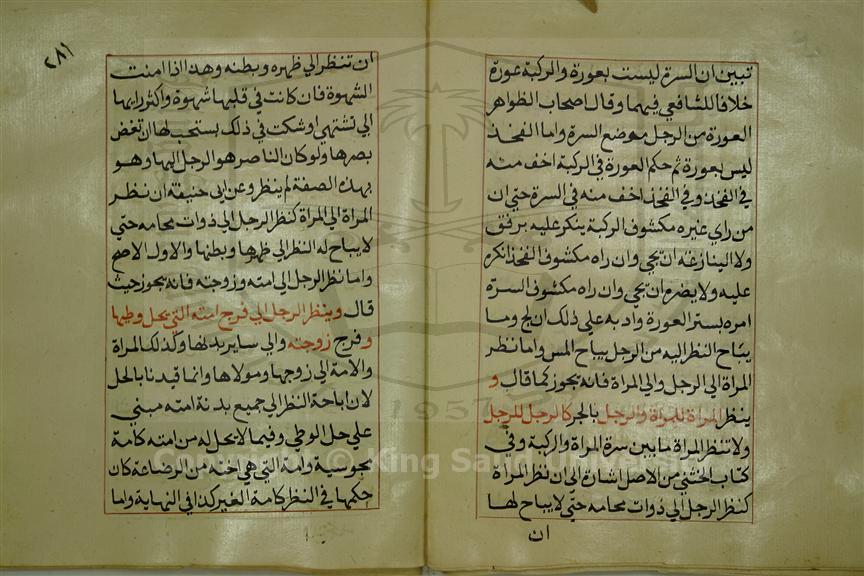 تبين ان السرة ليست بعورة والركبة عورة
خلافا للشافعي فيهما وقال اصحاب الظواهر
العورة من الرجل موضع السرة واما الفخذ
ليس بعورة ثم حكم العورة في الركبة اخف منه
في الفخذ وفي الفخذ اخف منه في السرة حتي ان
من راي غيره مكشوف الركبة ينكر عليه برفق
ولا ينازعه ان يحي وان راه مكشوف الفخذ انكره
عليه ولا يضره ان يحي وان راه مكشوف السرة
امره بستر العورة وادبه علي ذلك ان لج وما
يباح النظر اليه من الرجل يباح المس واما نظر
المراة الي الرجل والي المراة فانه يجوز كما قال و
ينظر المراة للمراة والرجل بالجر كالرجل للرجل
ولا تنظر المراة ما بين سرة المراة والركبة وفي
كتاب الخنثي من الاصل اشارة الي ان نظر المراة
كنظر الرجل الي ذوات محامه حتي لا يباح لها
ان
٢٨١
ان تنظر الي ظهره وبطنه وهذا اذا امنت
الشهوة فان كانت في قلبها شهوة واكثر رايها
الي تشتهي او شكت في ذلك يستحب لها ان تغض
بصرها ولو كان الناصر هو الرجل اليها وهو
بهذه الصفة لم ينظر وعن ابي حنيفة ان نظر
المراة الي المراة كنظر الرجل الي ذوات محامه حتي
لا يباح له النظر الي ظهرها وبطنها والاول الاصح
واما نظر الرجل الي امته وزوجته فانه يجوز حيث
قال وينظر الرجل الي فرج امته التي يحل وطيها
و فرج زوجته والي ساير بدنها وكذلك المراة
والامة الي زوجها ومولاها وانما قيدنا بالحل
لان اباحة النظر الي جميع بدنة امته مبني
علي حل الوطي وفيما لا يحل له من امته كامة
مجوسية وامة التي هي اخته من الرضاعة كان
حكمها في النظر كامة الغير كذا في النهاية واما
Copyright © King Saud University
1957